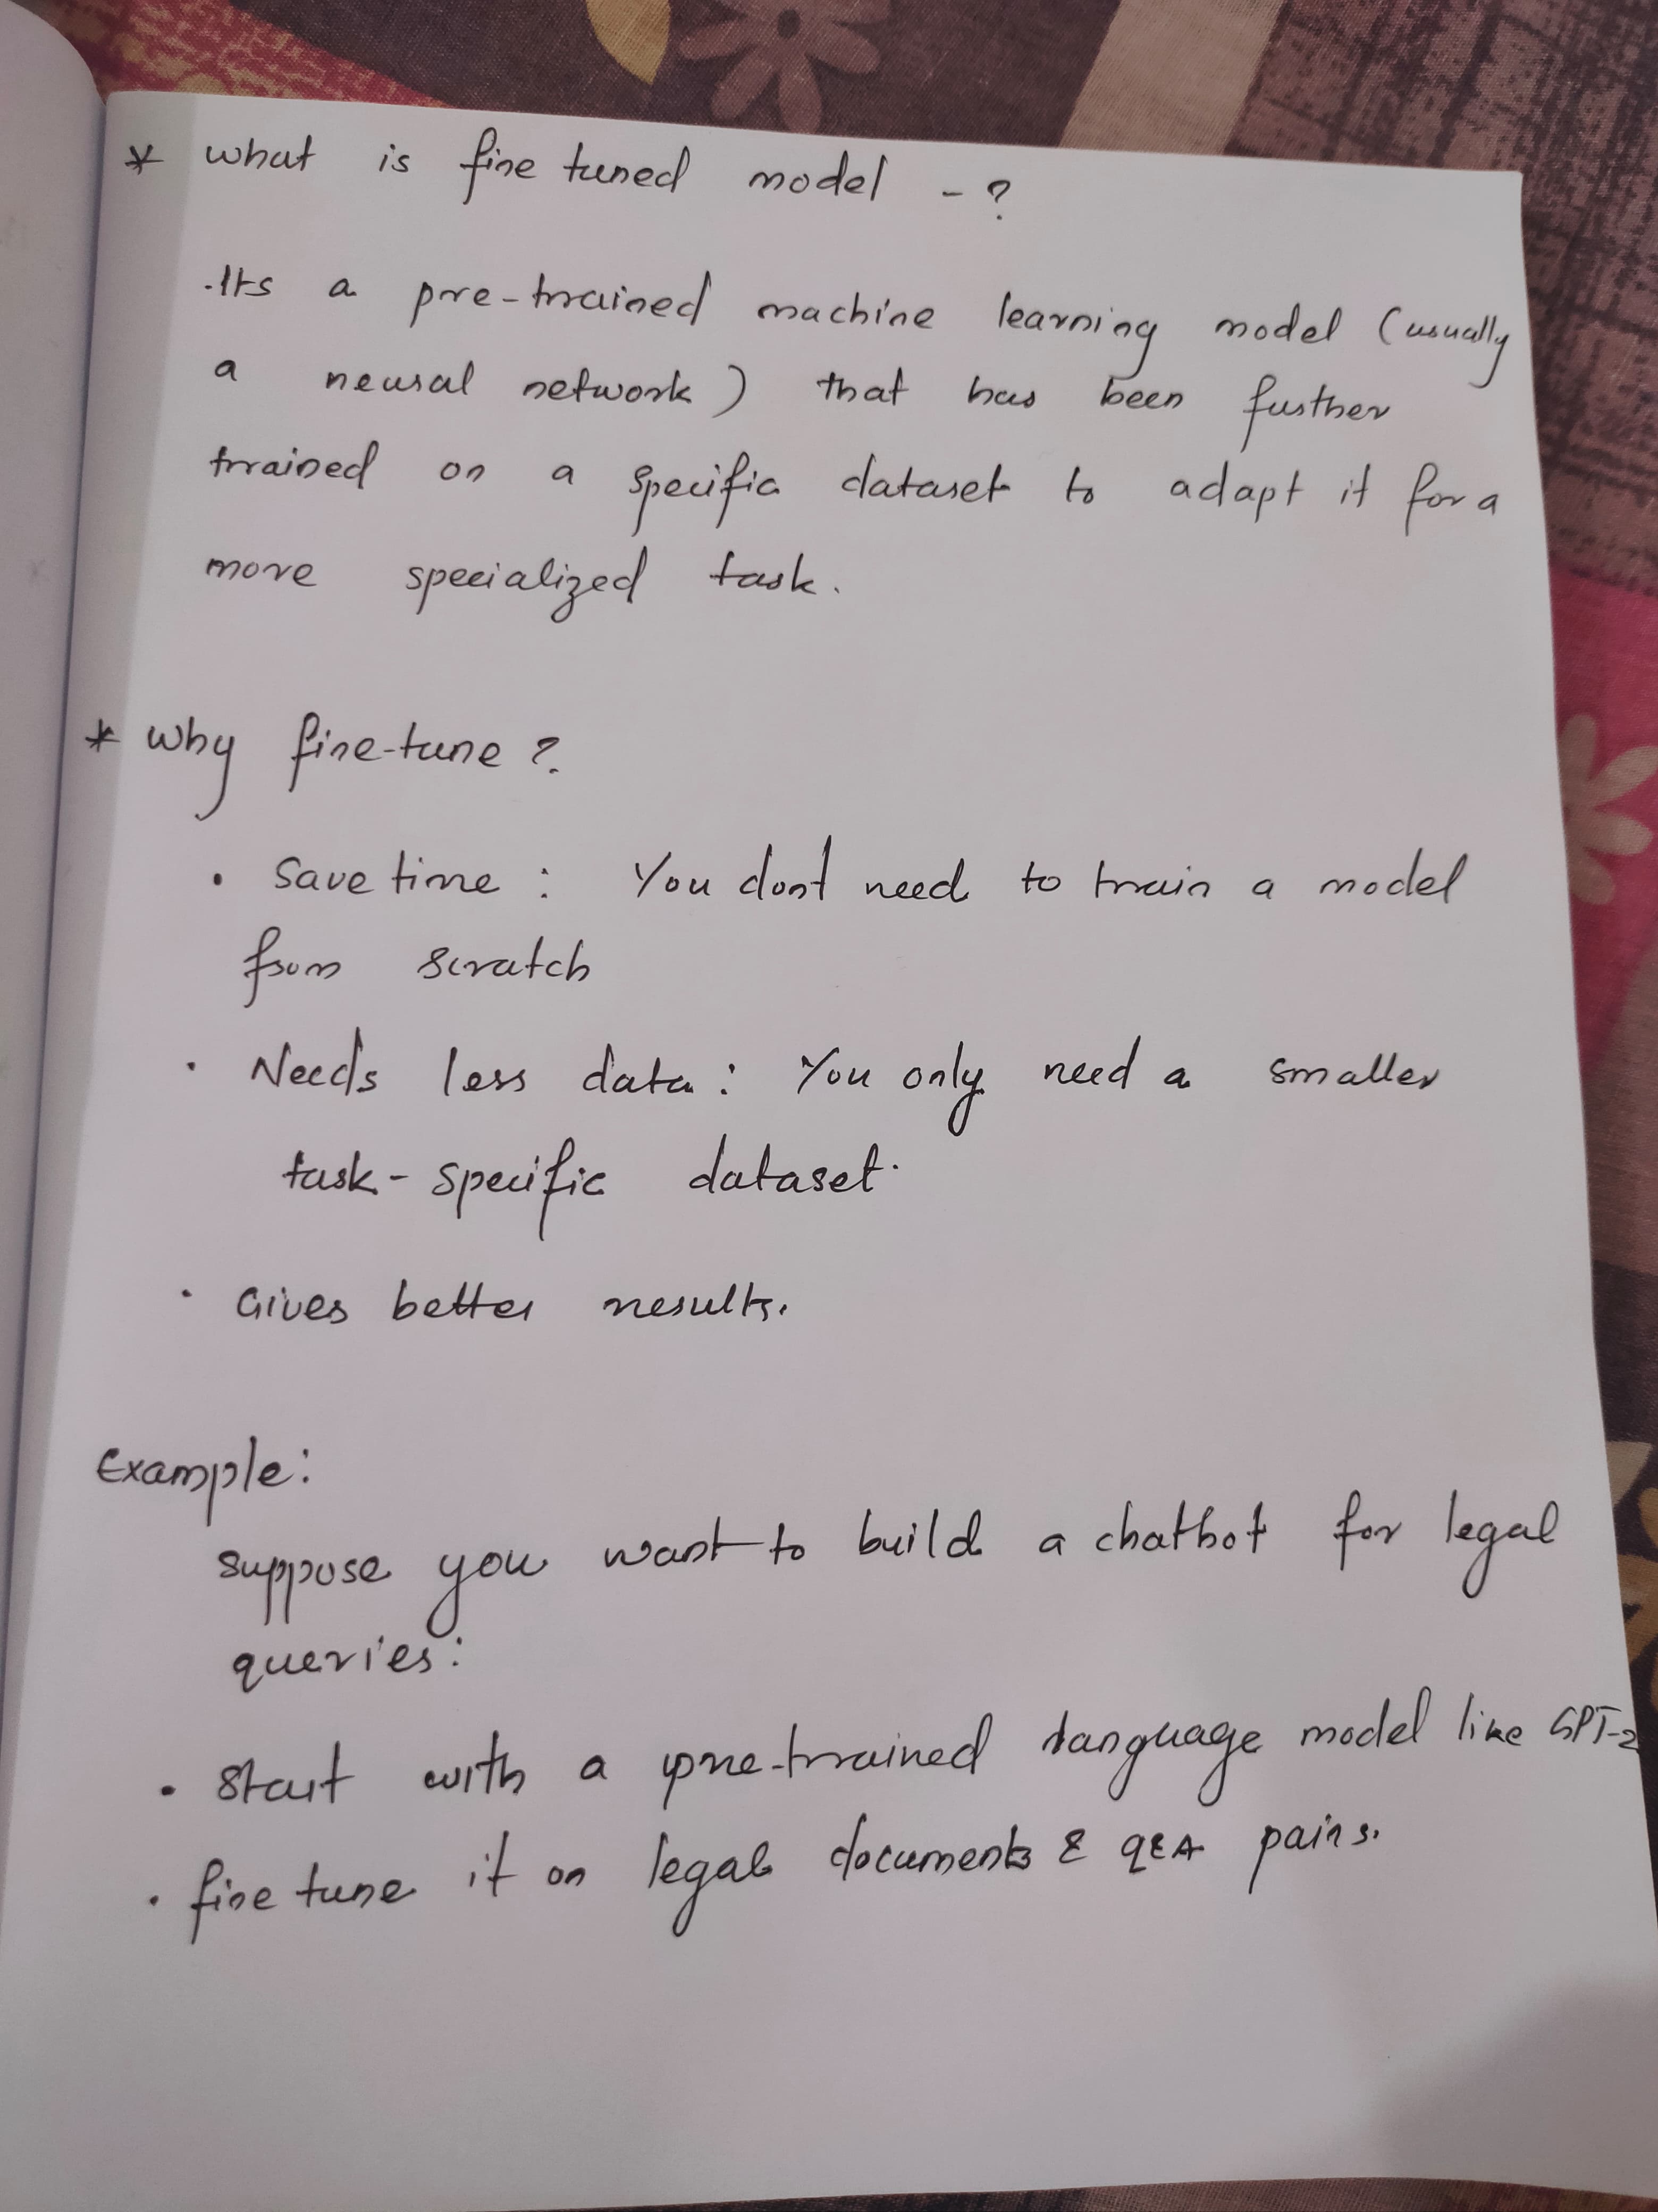 * what is fine tuned model - ?
. Its a pre-trained machine learning model (usually
a neural network) that has been further
trained on a specific dataset to adapt it for a
more specialized task.
* why fine-tune ?
• Save time : You dont need to train a model
from scratch
• Needs less data : You only need a smaller
task-specific dataset.
• Gives better results.
Example:
suppose you want to build a chatbot for legal
queries:
• Start with a pre-trained language model like GPT-2
• fine tune it on legal documents & Q&A pairs.